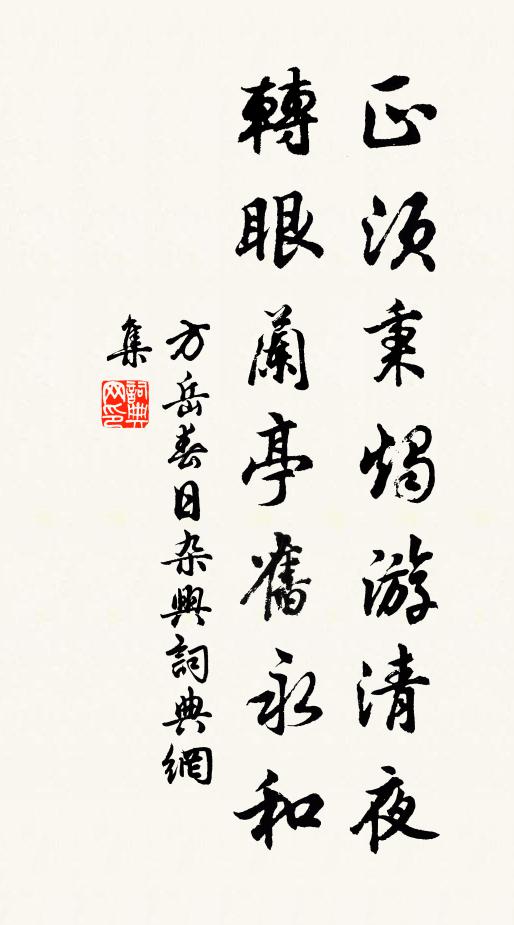 正須秉燭游清夜
轉眼蘭亭舊永和
方岳春日杂興詞典網
集
詞典网印